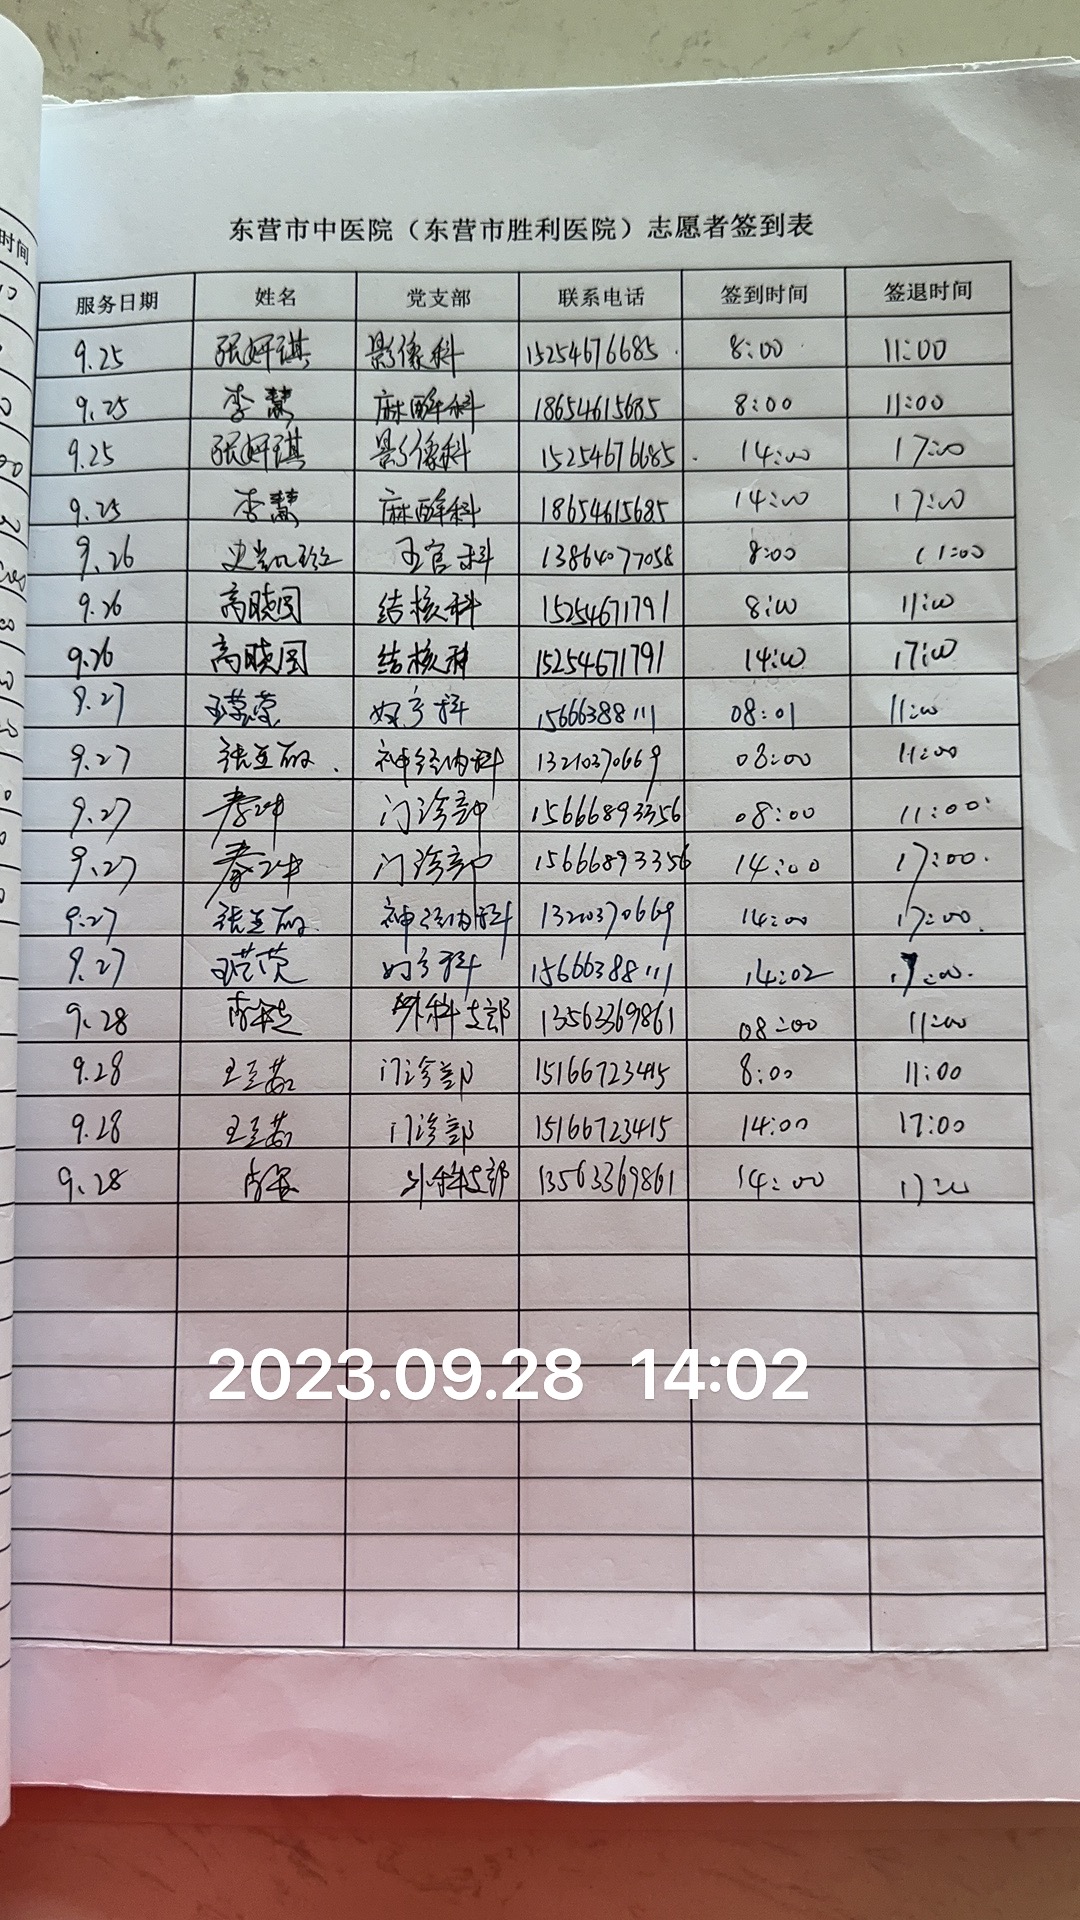 东营市中医院（东营市胜利医院）志愿者签到表
时间
服务日期 姓名 党支部 联系电话 签到时间 签退时间
9.25 张妍琪 影像科 15254676685 8:00 11:00
9.25 李慧 麻醉科 18654615685 8:00 11:00
9.25 张妍琪 影像科 15254676685 14:00 17:00
9.25 李慧 麻醉科 18654615685 14:00 17:00
9.26 五官科 13864077058 8:00 11:00
9.26 高晓囡 结核科 15254671791 8:00 11:00
9.26 高晓囡 结核科 15254671791 14:00 17:00
9.27 妇产科 15666388111 08:01 11:00
9.27 神经内科 13210370669 08:00 11:00
9.27 门诊部 15666893356 08:00 11:00
9.27 门诊部 15666893356 14:00 17:00
9.27 神经内科 13210370669 14:00 17:00
9.27 妇产科 15666388111 14:02 17:00
9.28 外科支部 13563369861 08:00 11:00
9.28 门诊部 15166723415 8:00 11:00
9.28 门诊部 15166723415 14:00 17:00
9.28 外科支部 13563369861 14:00 17:00
2023.09.28 14:02